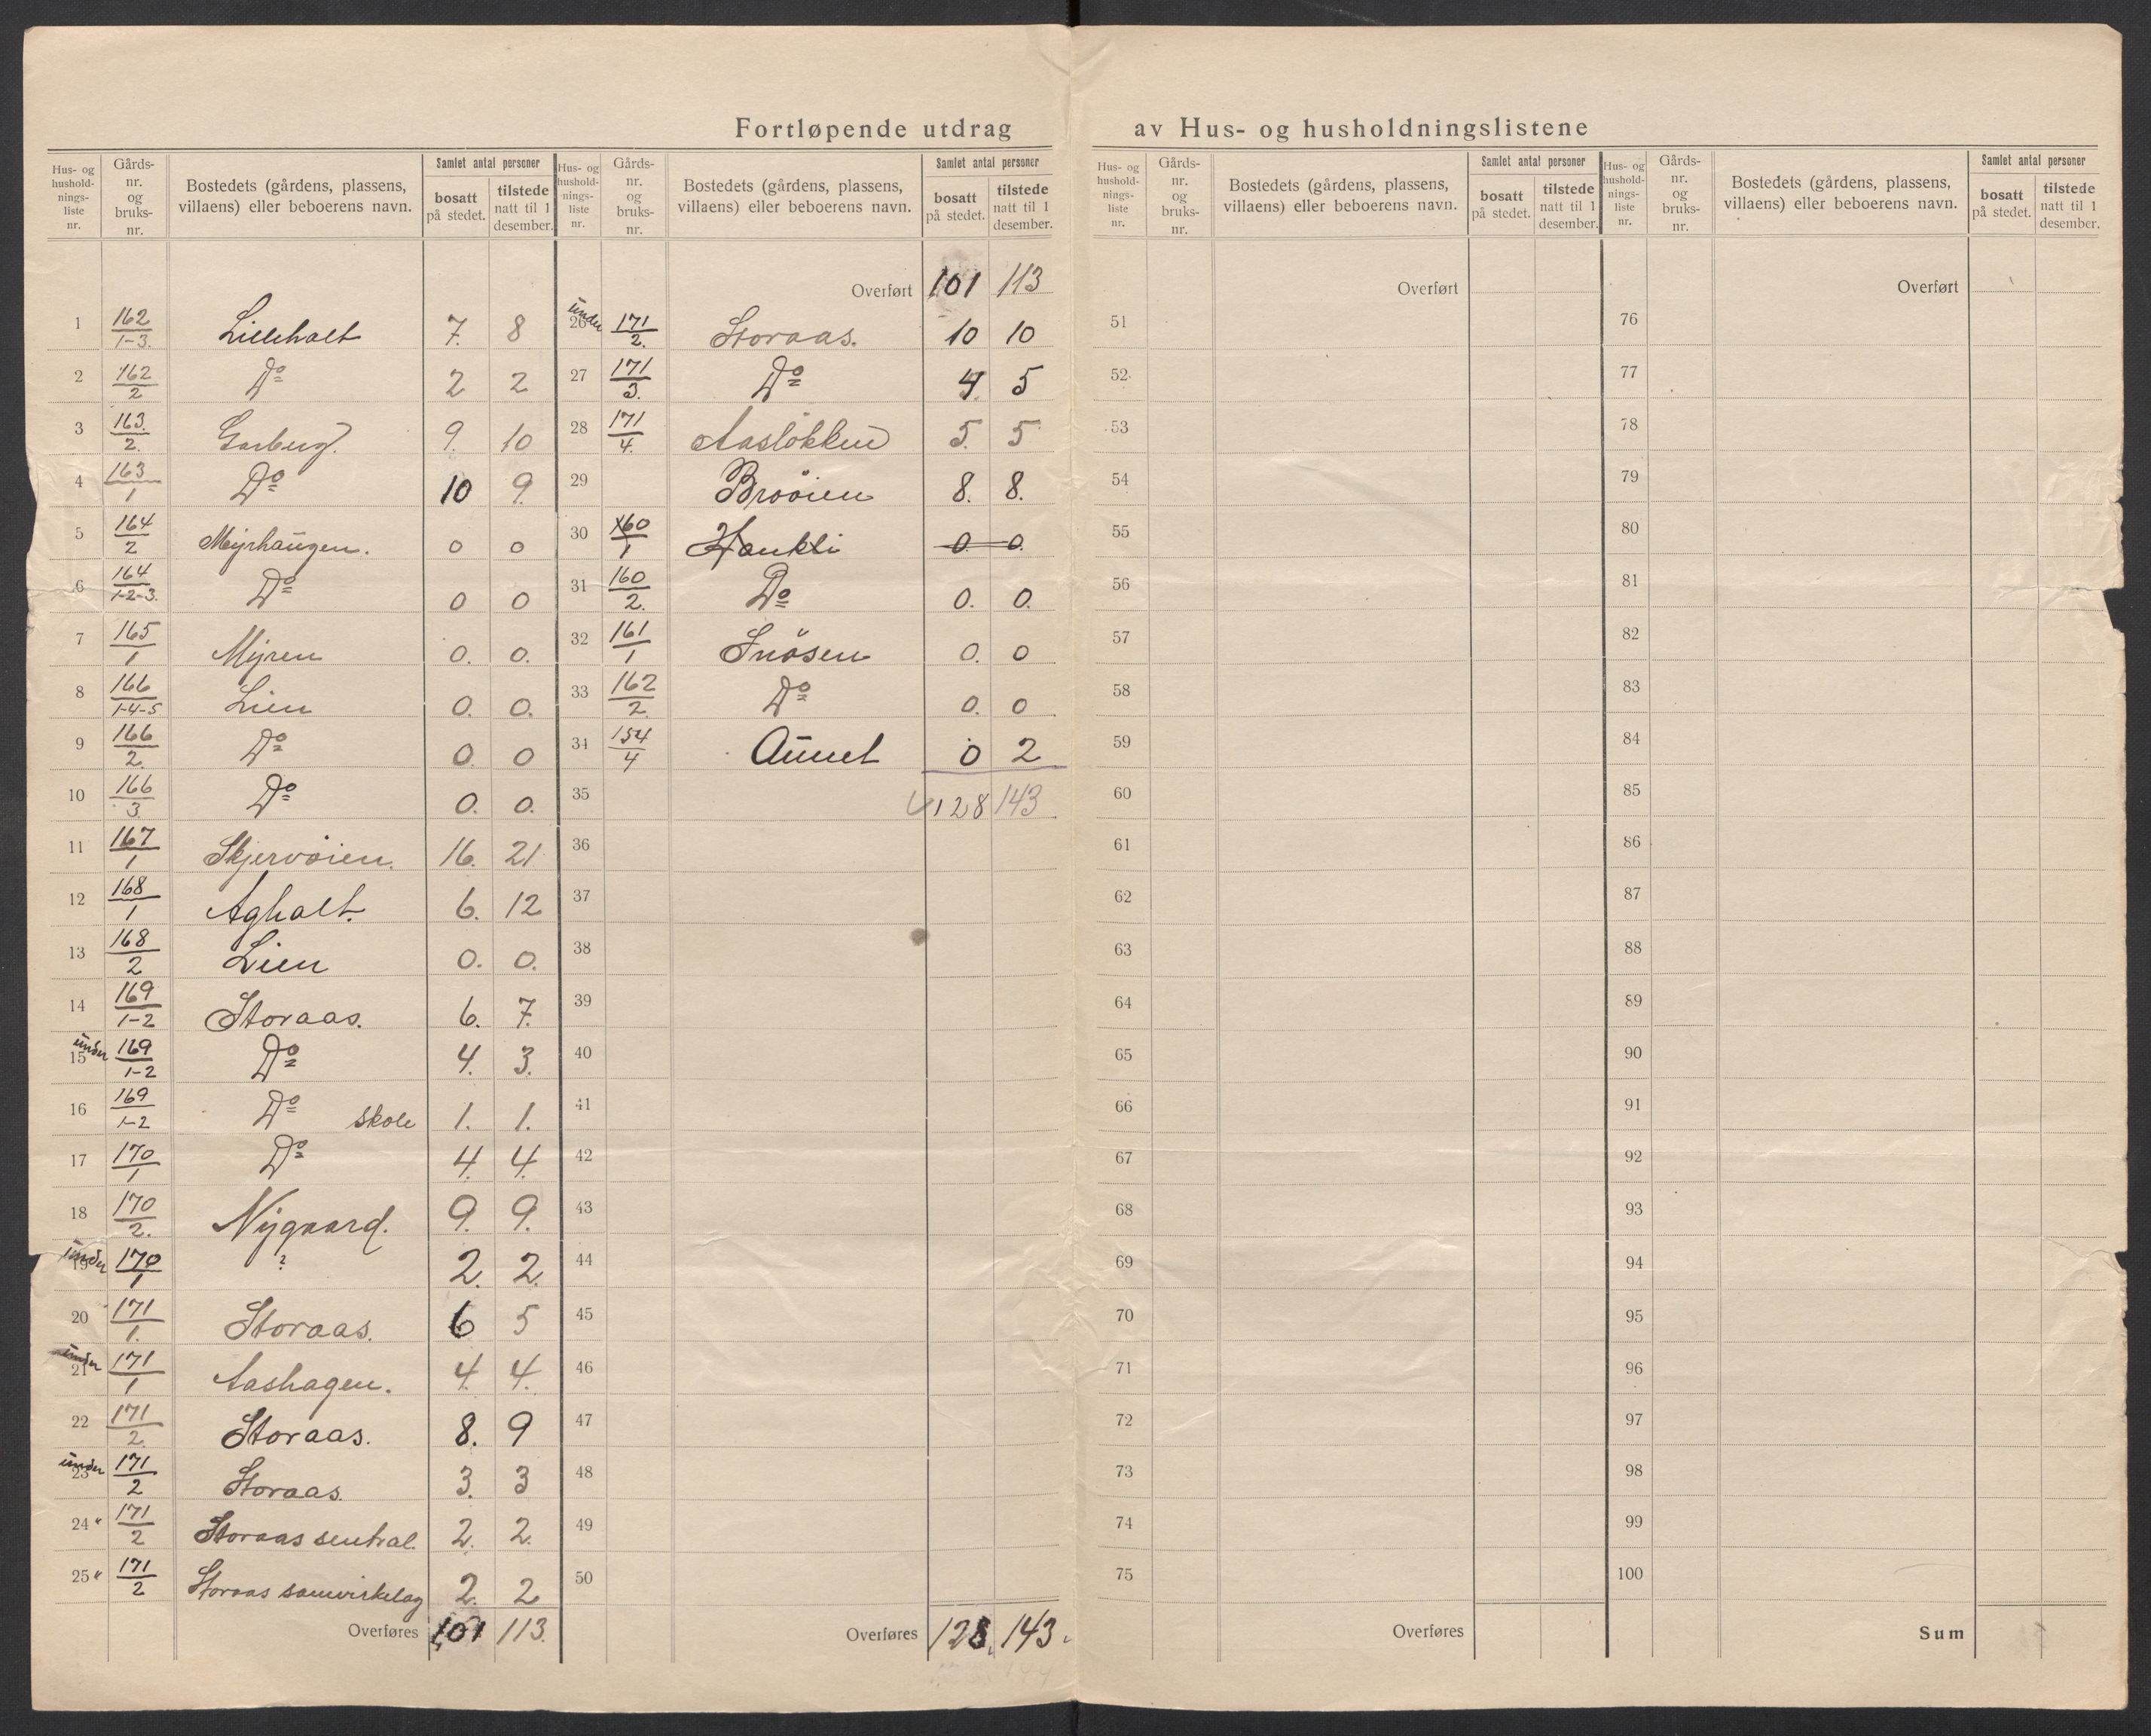 Fortløpende utdrag av Hus- og husholdningslistene
Hus- og hushold-nings-liste nr. | Gårds-nr. og bruks-nr. | Bostedets (gårdens, plassens, villaens) eller beboerens navn. | Samlet antal personer bosatt på stedet. | tilstede natt til 1 desember.
1 162/1-3. Lilleholt 7. 8
2 162/2 Do 2 2
3 163./2. Garberg. 9. 10
4 163/1 Do 10 9.
5 164/2 Myrhaugen. 0 0
6 164/1-2-3. Do 0 0
7 165/1 Myren 0. 0.
8 166/1-4-5 Lien 0. 0.
9 166/2. Do 0. 0
10 166/3. Do 0. 0.
11 167/1 Skjervöien. 16. 21
12 168/1 Agholt. 6. 12
13 168/2 Lien 0. 0.
14 169/1-2 Storaas. 6. 7.
under 15 169/1-2 Do 4. 3.
16 169/1-2 Do skole 1. 1.
17 170/1 Do 4. 4.
18 170/2. Nygaard. 9. 9.
under 19 170/1 ? 2. 2.
20 171/1. Storaas. 6 5
under 21 171/1 Aashagen. 4. 4.
22 171/2. Storaas. 8. 9
under 23 171/2 Storaas. 3. 3
24 " 171/2 Storaas sentral. 2. 2.
25 " 171/2 Storaas samvirkelag 2. 2
Overføres 101 113.
Hus- og hushold-nings-liste nr. | Gårds-nr. og bruks-nr. | Bostedets (gårdens, plassens, villaens) eller beboerens navn. | Samlet antal personer bosatt på stedet. | tilstede natt til 1 desember.
Overført 101 113
under 26 171/2. Storaas. 10 10
27 171/3. Do 4. 5
28 171/4. Aaslökken 5. 5
29 Brööien 8. 8.
30 160/1 Haukli 0 0
31 160/2. Do 0. 0.
32 161/1 Snösen 0. 0
33 162/2 Do 0. 0
34 154/4 Aunet 0 2
35 128 143
36
37
38
39
40
41
42
43
44
45
46
47
48
49
50
Overføres 128. 143.
Hus- og hushold-nings-liste nr. | Gårds-nr. og bruks-nr. | Bostedets (gårdens, plassens, villaens) eller beboerens navn. | Samlet antal personer bosatt på stedet. | tilstede natt til 1 desember.
Overført
51
52
53
54
55
56
57
58
59
60
61
62
63
64
65
66
67
68
69
70
71
72
73
74
75
Overføres
Hus- og hushold-nings-liste nr. | Gårds-nr. og bruks-nr. | Bostedets (gårdens, plassens, villaens) eller beboerens navn. | Samlet antal personer bosatt på stedet. | tilstede natt til 1 desember.
Overført
76
77
78
79
80
81
82
83
84
85
86
87
88
89
90
91
92
93
94
95
96
97
98
99
100
Sum